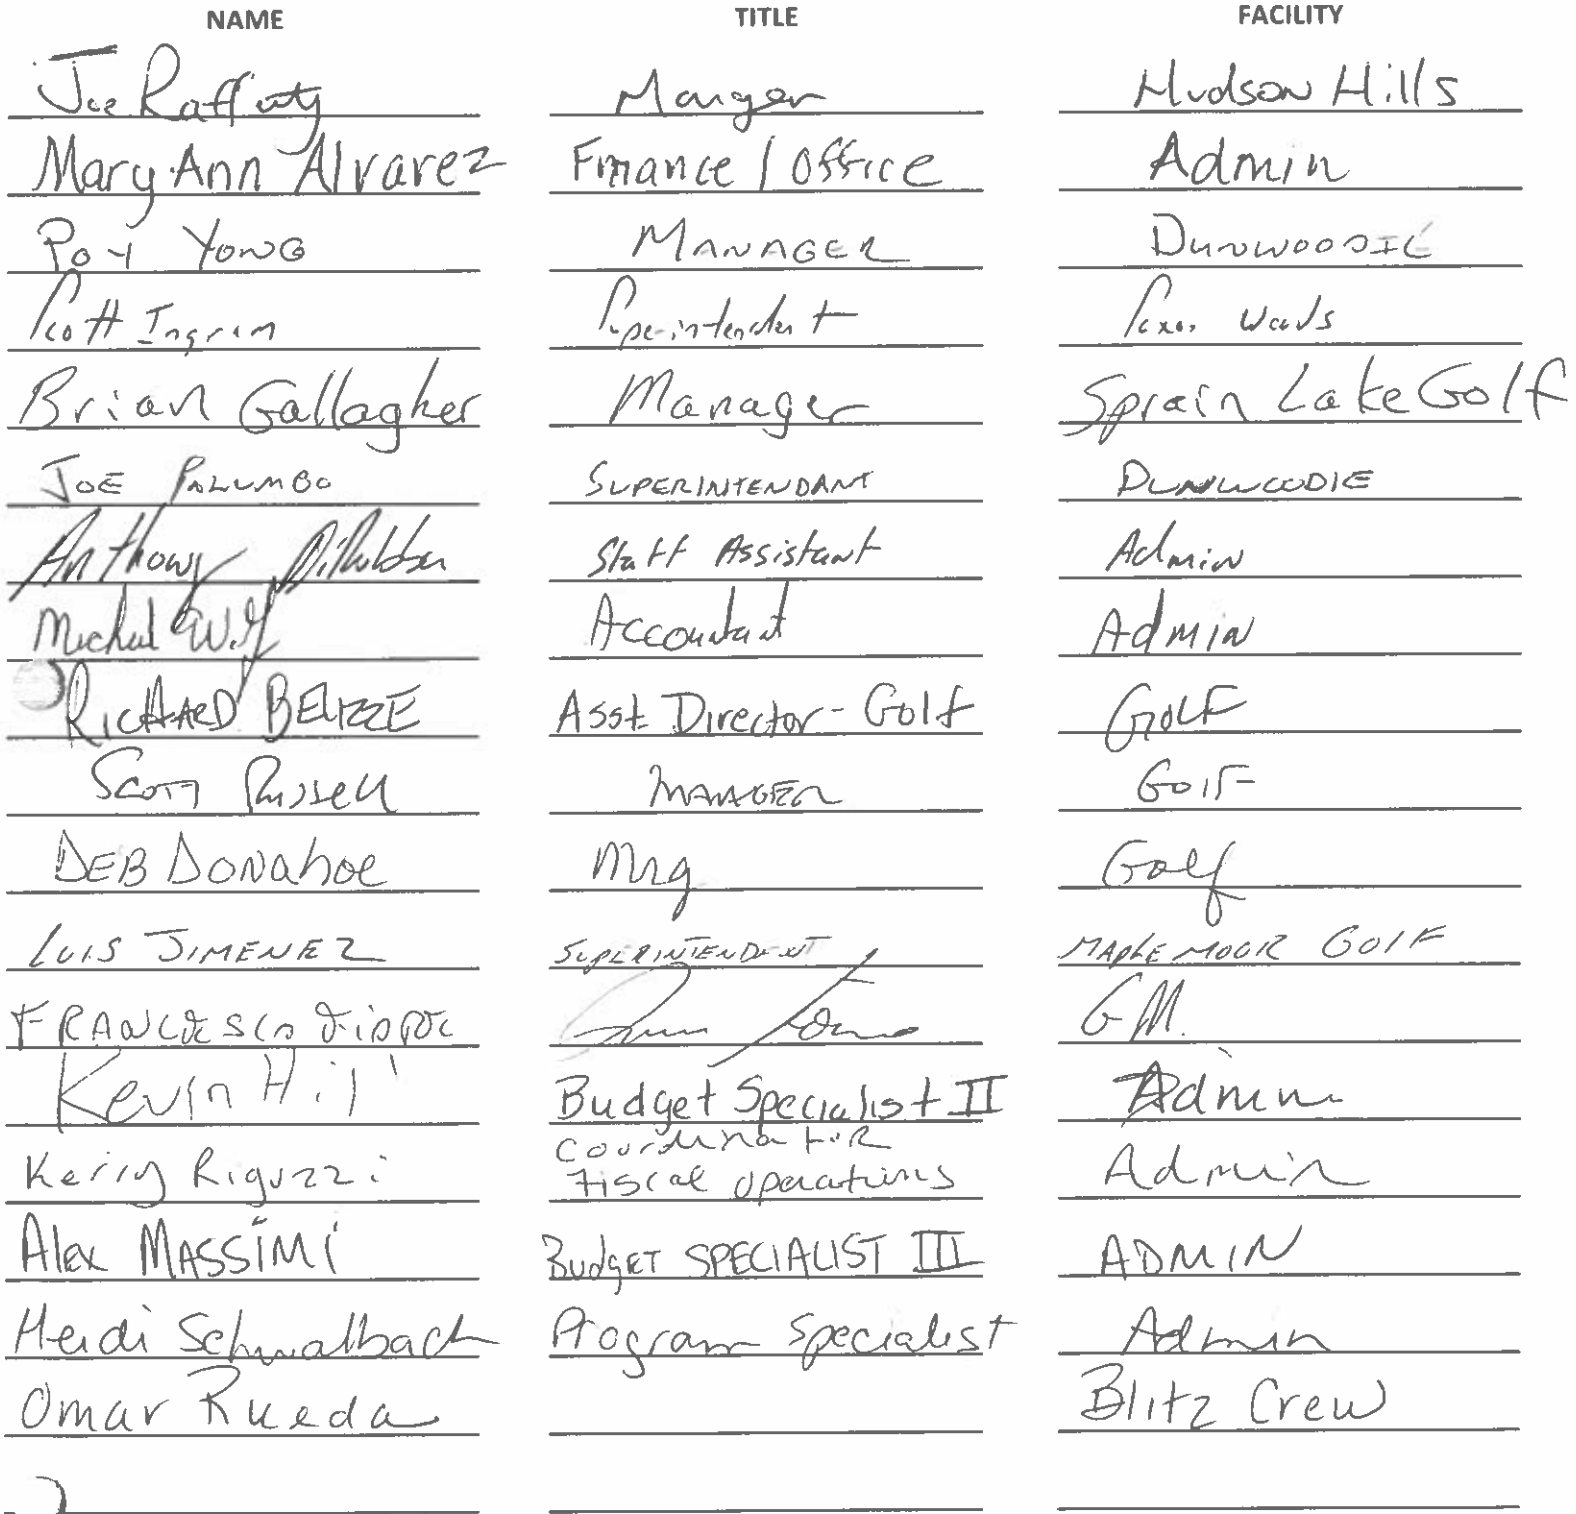 NAME TITLE FACILITY
Joe Rafferty Manger Hudson Hills
Mary Ann Alvarez Finance / Office Admin
Poy Yong MANAGER DUNWOODIE
Scott Ingram Superintendent Saxon Woods
Brian Gallagher Manager Sprain Lake Golf
JOE PALUMBO SUPERINTENDANT DUNWOODIE
Anthony Staff Assistant Admin
Michael Accountant Admin
RICHARD BELIZZE Asst Director - Golf GOLF
Scott Russell MANAGER Golf
DEB DONahoe Mrg Golf
LUIS JIMENEZ SUPERINTENDENT MAPLE MOOR GOLF
FRANCESCO G.M.
Kevin Hill Budget Specialist II Admin
Coordinator
Kerry Riguzzi Fiscal Operations Admin
Alex MASSIMI Budget SPECIALIST III ADMIN
Heidi Schwalbach Program Specialist Admin
Omar Rueda Blitz Crew